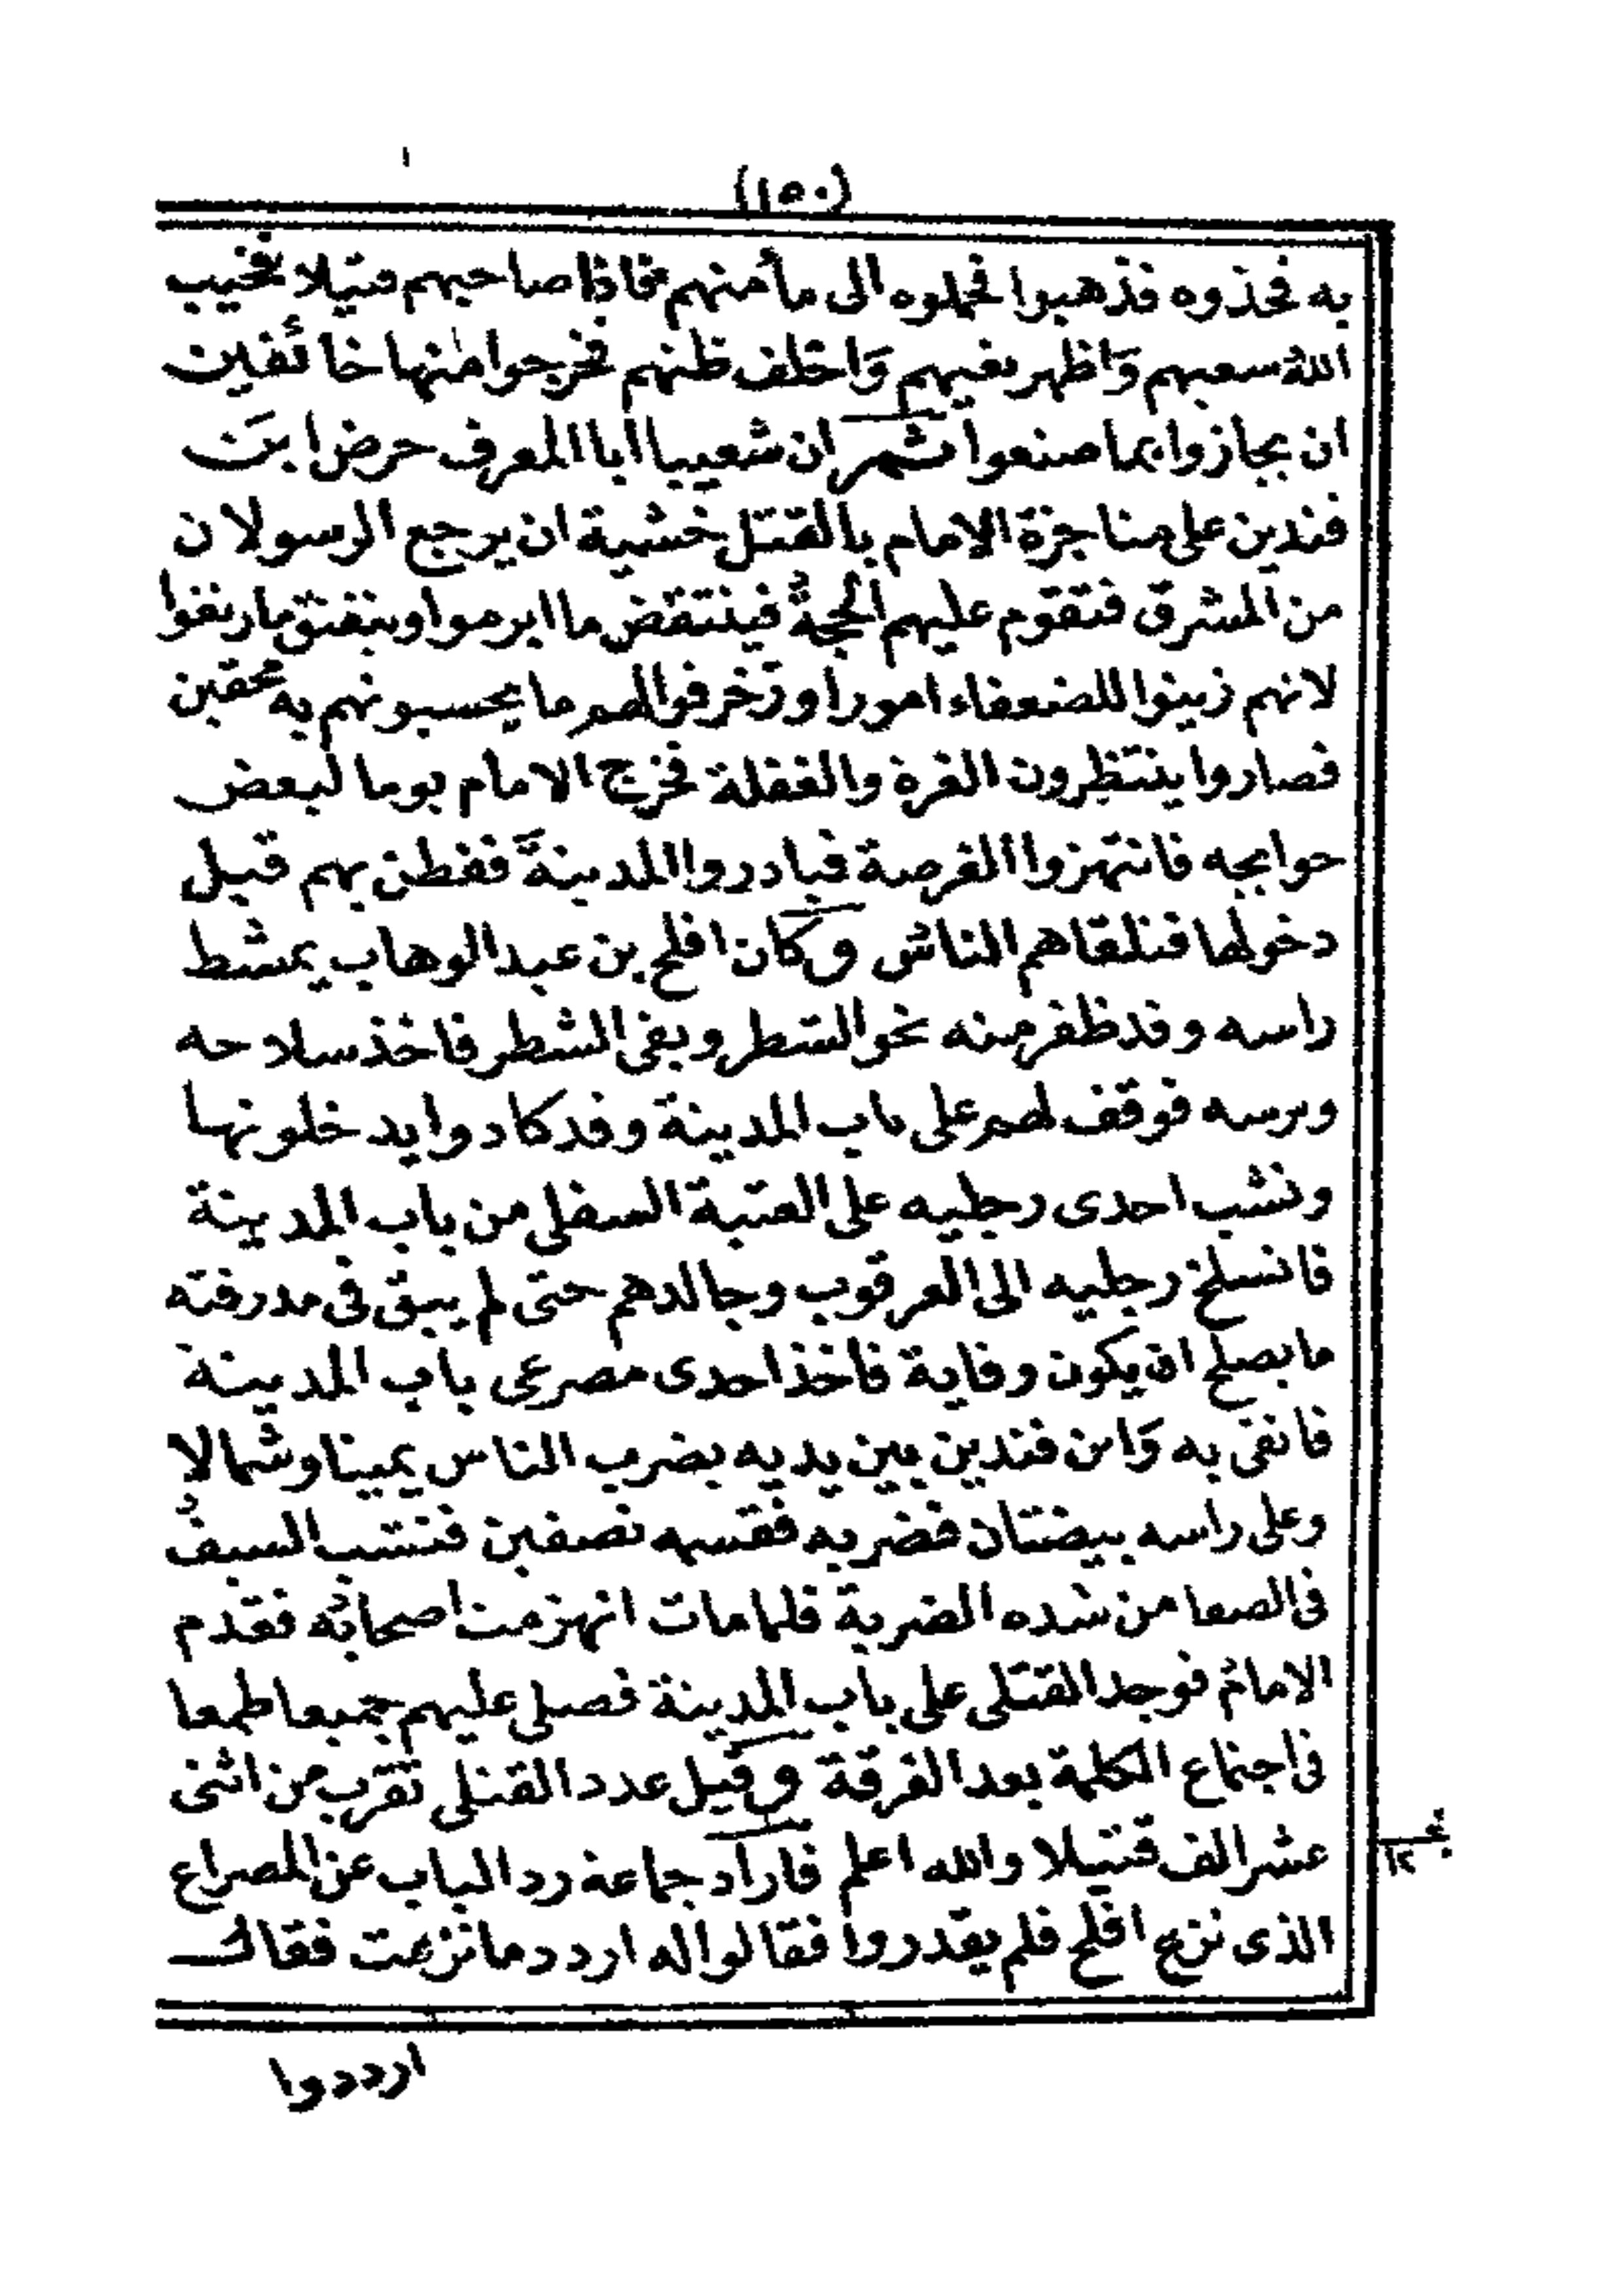 (١٥٠)
به فخذوه فذهبوا فحملوه الى مأمنهم فاذا صاحبهم قتيلا فخيب
الله سعيهم وَاظهر بغيهم وَاخلف ظنهم فخرجوا منها خائفين
ان يجازوا بما صنعوا ثم ان شعيبا ابا المعرف حرض ابن
فندين على مناجزة الامام بالقتل خشية ان يرجع الرسولان
من المشرق فتقوم عليهم الحجة فينتقض ما ابرموا وينفتق ما رتقوا
لانهم زينوا للضعفاء امورا وزخرفوا لهم ما يحسبونهم به محقين
فصاروا ينتظرون الغرة والغفلة فخرج الامام يوما لبعض
حوايجه فانتهزوا الفرصة فبادروا المدينة ففطن بهم قبل
دخولها فتلقاهم الناس وكان افلح بن عبد الوهاب يمشط
راسه وقد ظفر منه نحو الشطر وبقى الشطر فاخذ سلاحه
وترسه فوقف لهم على باب المدينة وقد كادوا يدخلونها
ونشب احدى رجليه على العتبة السفلى من باب المدينة
فانسلخ رجليه الى العرقوب وجالدهم حتى لم يبق فى مدرقته
ما يصلح ان يكون وقاية فاخذ احدى مصرعى باب المدينة
فاتقى به وَابن فندين بين يديه يضرب الناس يمينا وشمالا
وعلى راسه بيضتان فضربه فقسمه نصفين فنشب السيف
فى الصفا من شده الضربة فلما مات انهزمت اصحابه فقدم
الامام فوجد القتلى على باب المدينة فصلى عليهم جميعا طمعا
فى اجتماع الكلمة بعد الفرقة وقيل عدد القتلى تقرب من اثنى
عشر الف قتيلا والله اعلم فاراد جماعة رد الباب عن المصراع
الذى نزع افلح فلم يقدروا فقالوا له اردد ما نزعت فقال
ارددوا